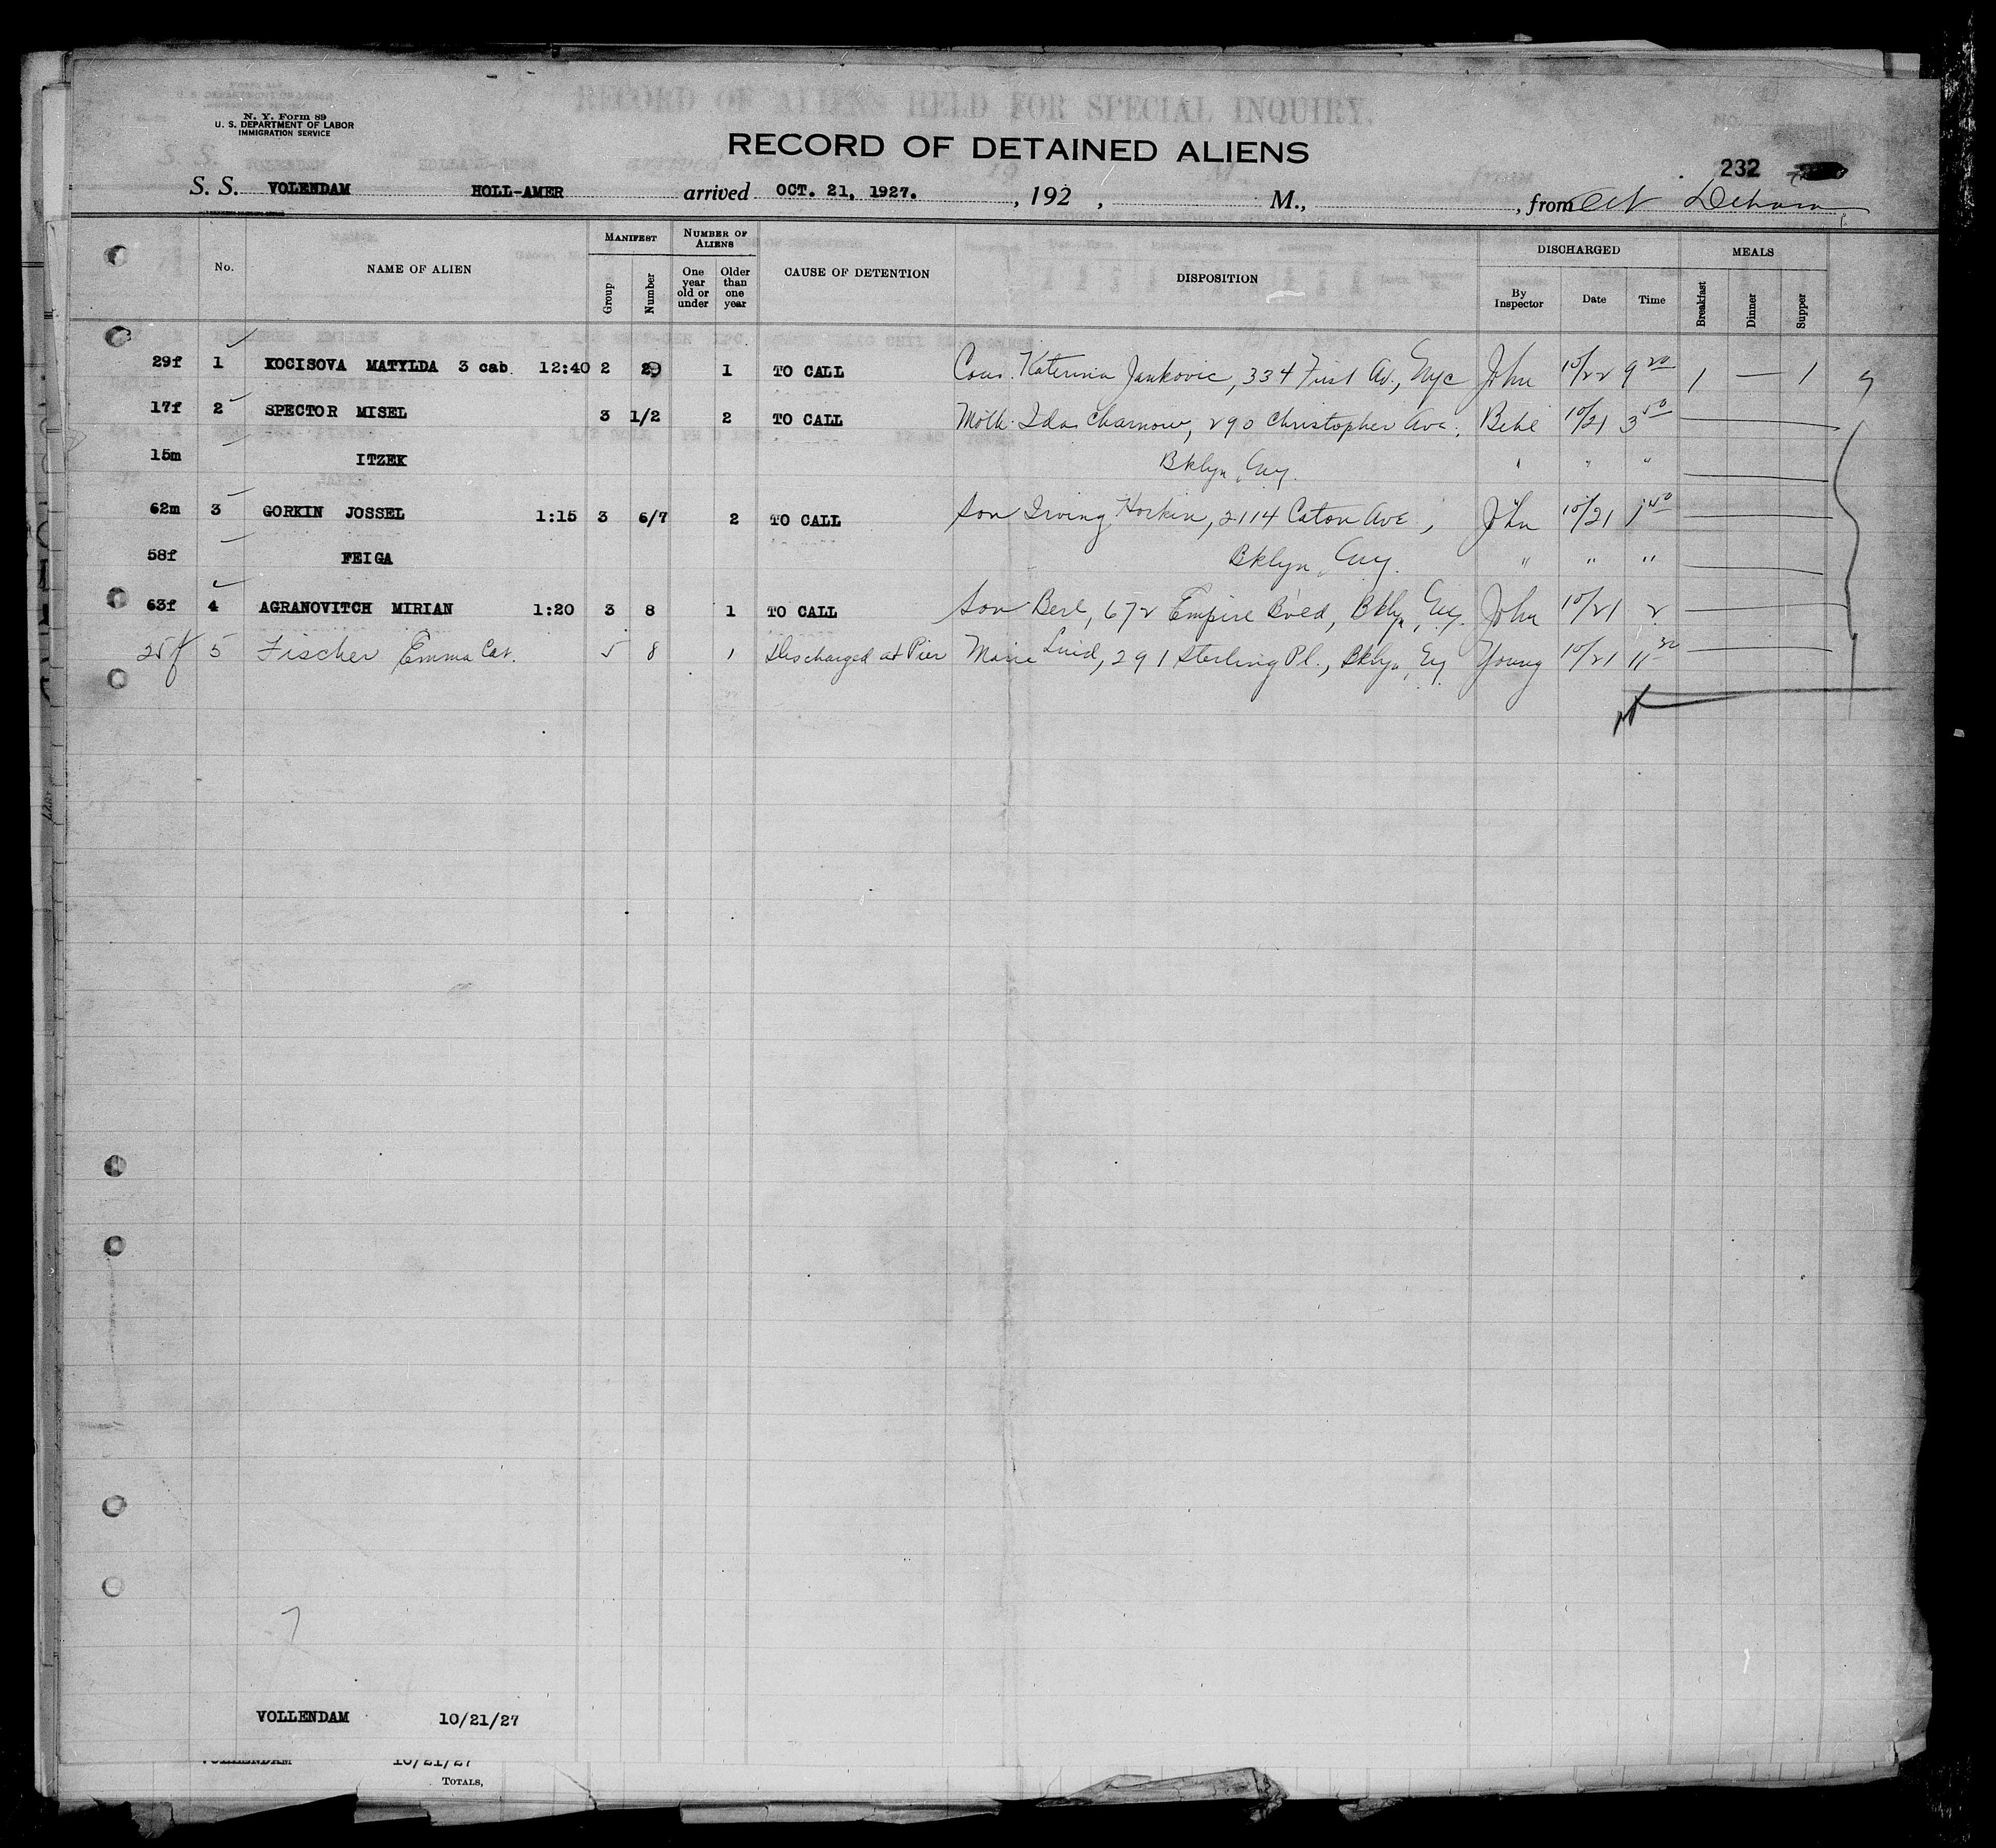 RECORD OF ALIENS HELD FOR SPECIAL INQUIRY.
N. Y. Form 89
U. S. DEPARTMENT OF LABOR
IMMIGRATION SERVICE
RECORD OF DETAINED ALIENS
232
S. S. VOLENDAM HOLL-AMER arrived OCT. 21, 1927. , 192 , M., , from
No. NAME OF ALIEN MANIFEST Group Number NUMBER OF ALIENS One year old or under Older than one year CAUSE OF DETENTION DISPOSITION DISCHARGED By Inspector Date Time MEALS Breakfast Dinner Supper
29f 1 KOCISOVA MATYLDA 3 cab. 12:40 2 29 1 TO CALL Cous. Katerina Jankovic, 334 First Av., Nyc John 10/22 9 20 1 — 1
17f 2 SPECTOR MISEL 3 1/2 2 TO CALL Moth. Ida Charnow, 290 Christopher Ave. 10/21 3 50
15m ITZEK Bklyn, Ny. " " "
62m 3 GORKIN JOSSEL 1:15 3 6/7 2 TO CALL Son Irving Horkin, 2114 Caton Ave, John 10/21 1 40
58f FEIGA Bklyn, Ny. " " "
63f 4 AGRANOVITCH MIRIAN 1:20 3 8 1 TO CALL Son Berl, 672 Empire Bved, Bklyn, Ny. John 10/21 2
25f 5 Fischer Emma Cab. 5 8 1 Discharged at Pier Marie Lind, 291 Sterling Pl., Bklyn, Ny Young 10/21 11 30
VOLLENDAM 10/21/27
VOLLENDAM 10/21/27
TOTALS,